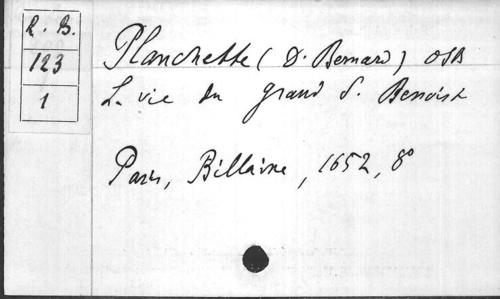 R. B.
123
1
Planchette ( D. Bernard ) OSB
La vie du grand S. Benoist
Paris, Billaine, 1652, 8°